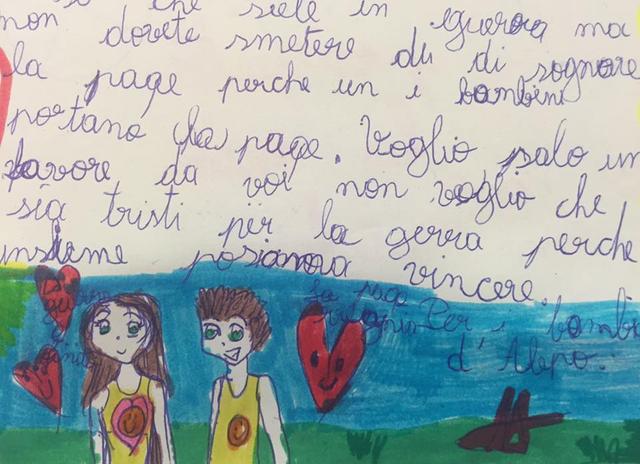 che siete in guerra ma
non dovete smetere du di sognare
la page perche un i bambini
portano (la) page. Voglio solo un
favore da voi non voglio che
sia tristi per la gerra perche
insieme posiamoa vincere.
La page
Per i bambi
d'Alepo.